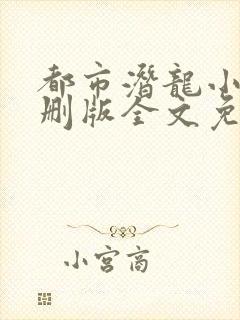 都市潛龍小
刪版全文免
小宮商